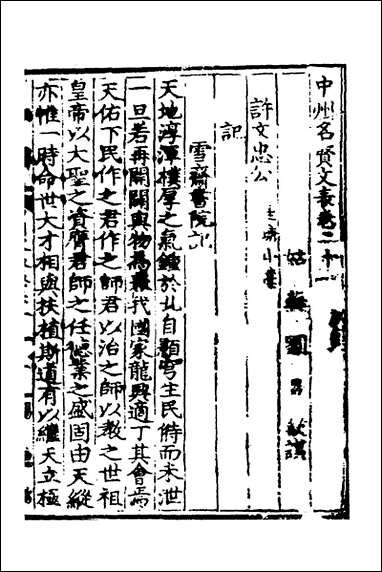 中州名賢文表卷二十一
姑蘇劉昌欽謨
許文忠公
圭塘小藁
記
雪齋書院記
天地淳渾樸厚之氣鍾於北自顓穹生民特而未泄
一旦若再開闢與物為代國家龍興適丁其會焉
天佑下民作之君作之師君以治之師以教之世祖
皇帝以大聖之資膺君師之任德業之盛固由天縱
亦惟一時命世大才相與扶植斯道有以繼天立極